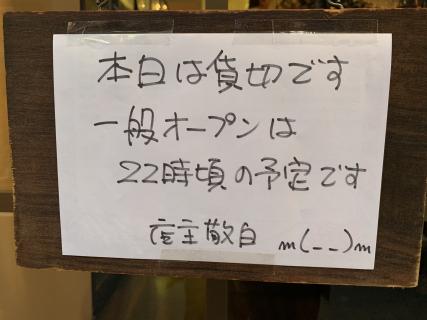 本日は貸切です
一般オープンは
22時頃の予定です
店主敬白 m(__)m